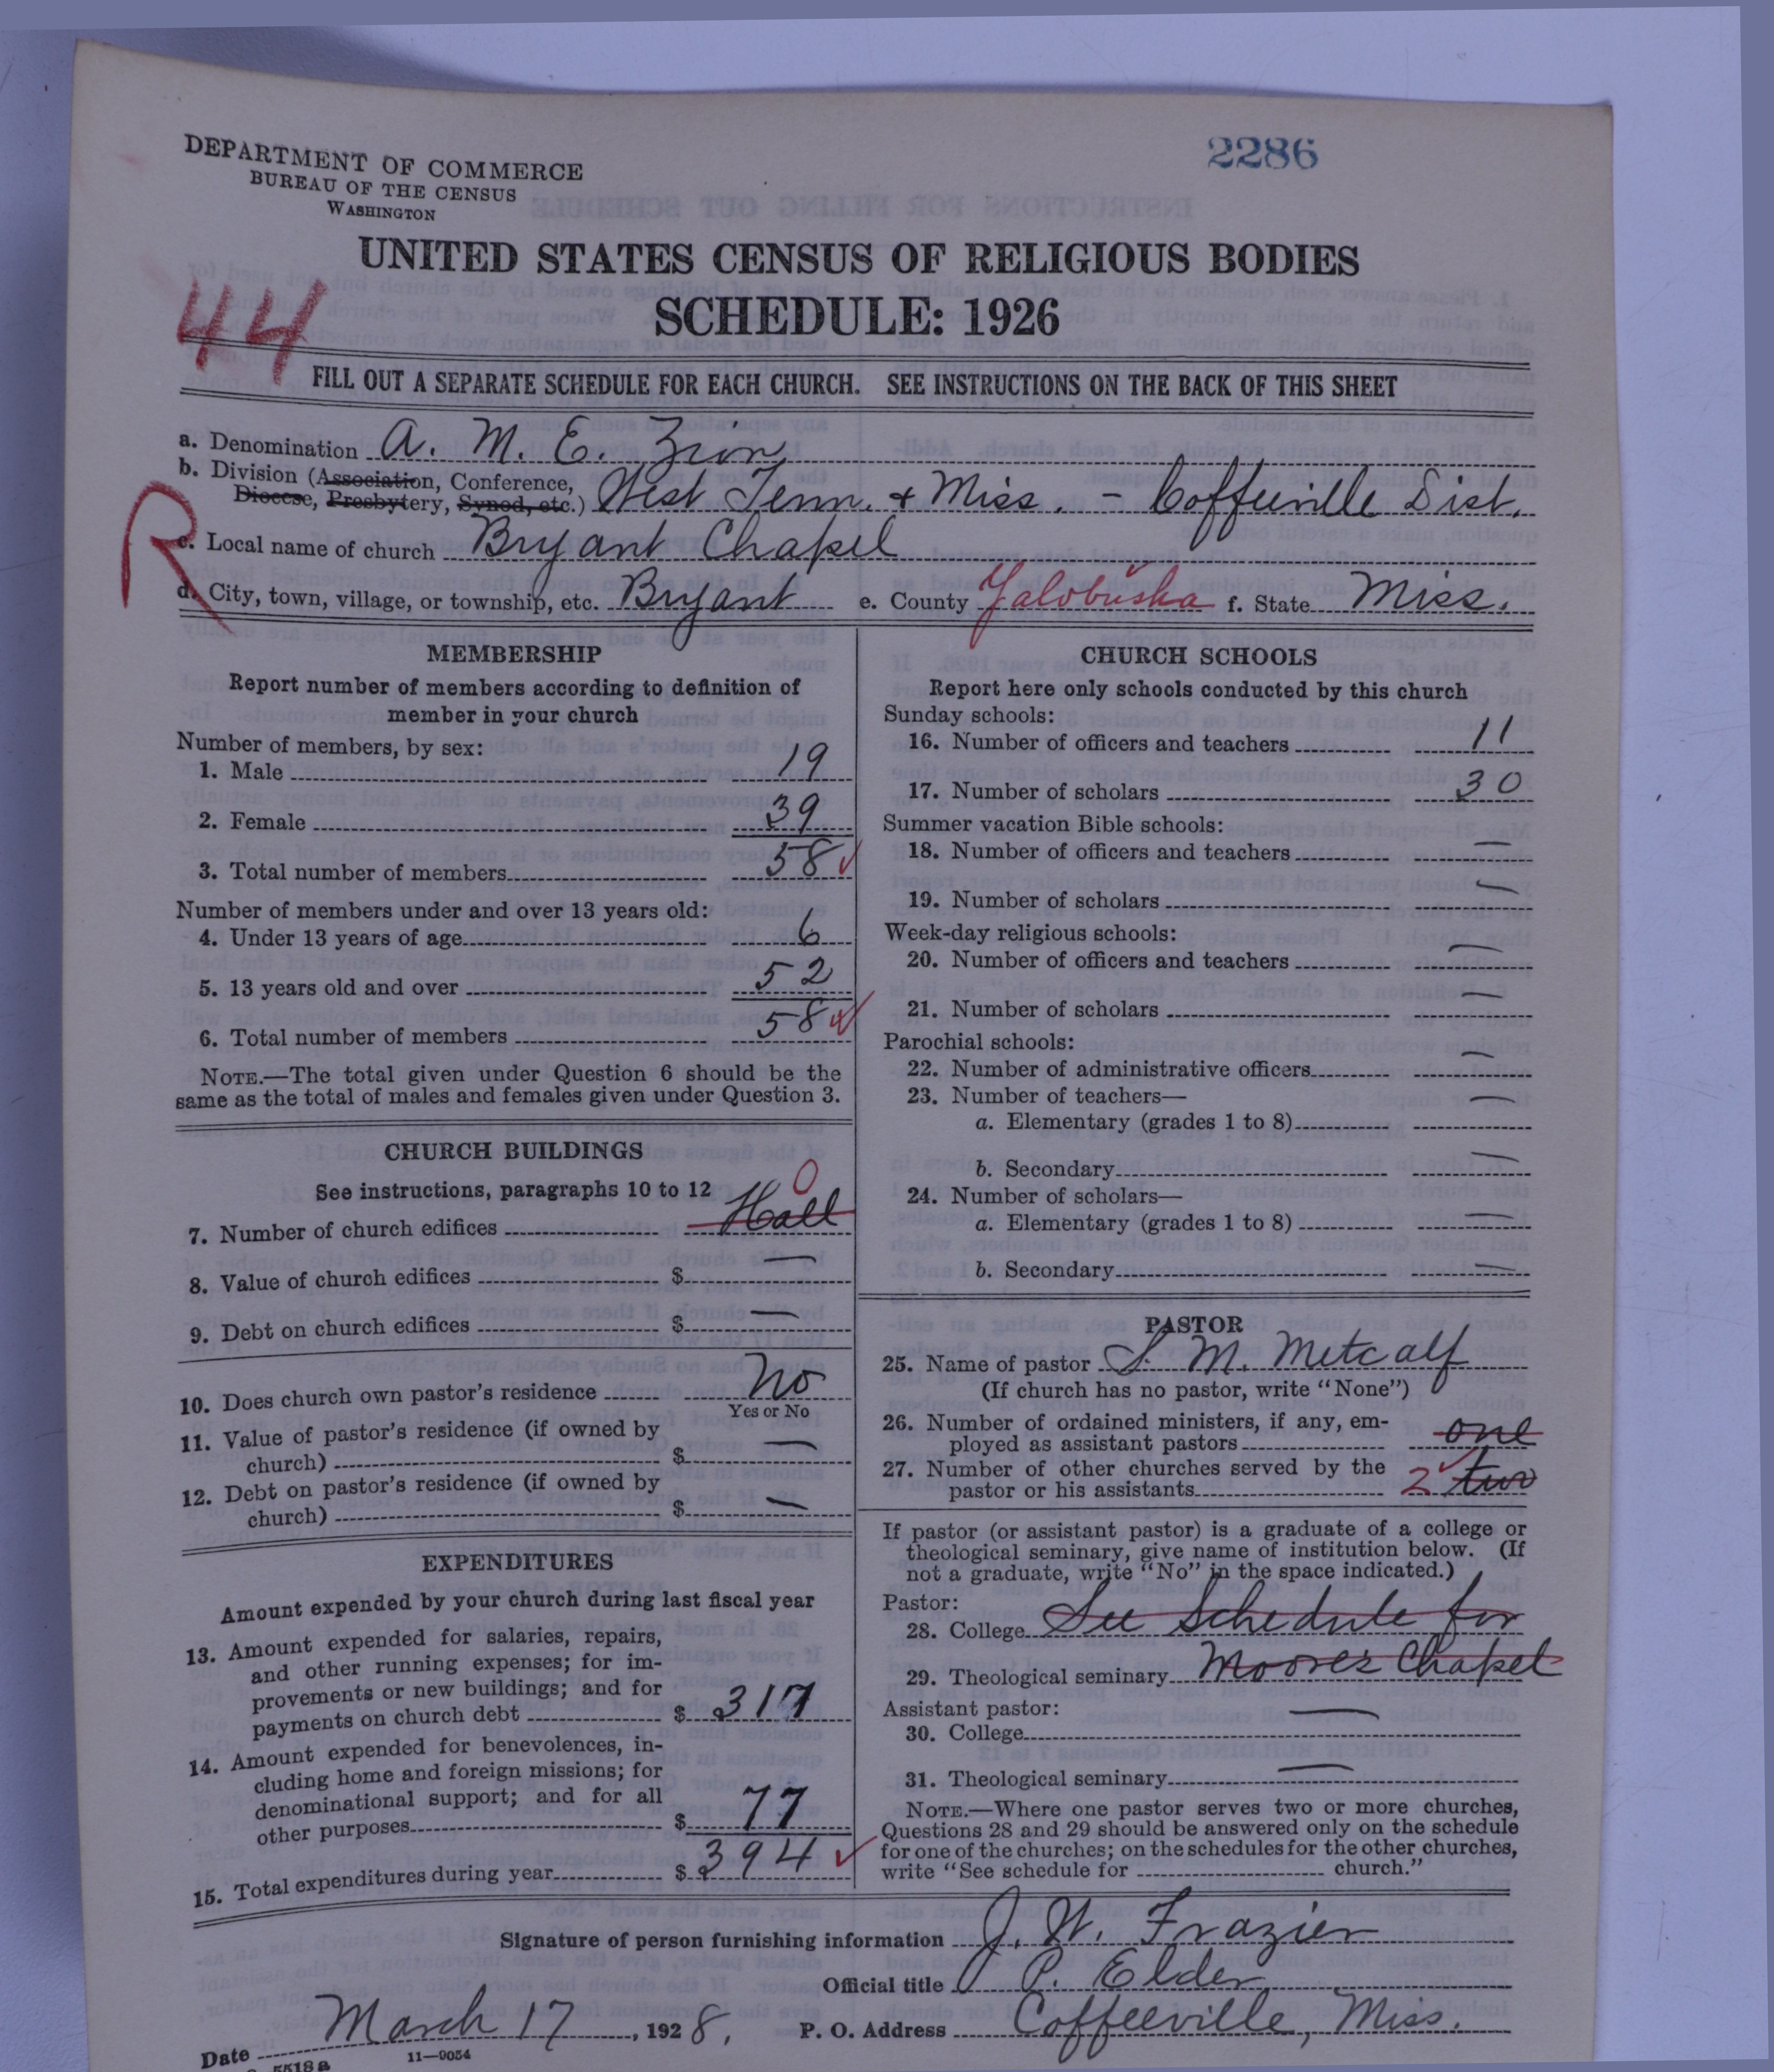 2286
DEPARTMENT OF COMMERCE
BUREAU OF THE CENSUS
WASHINGTON
UNITED STATES CENSUS OF RELIGIOUS BODIES
SCHEDULE: 1926
44
FILL OUT A SEPARATE SCHEDULE FOR EACH CHURCH. SEE INSTRUCTIONS ON THE BACK OF THIS SHEET
a. Denomination A. M. E. Zion
b. Division (Association, Conference,
Diocese, Presbytery, Synod, etc.) West Tenn. + Miss. - Coffeeville Dist.
R
c. Local name of church Bryant Chapel
d. City, town, village, or township, etc. Bryant e. County Yalobusha f. State Miss.
MEMBERSHIP
Report number of members according to definition of
member in your church
Number of members, by sex:
1. Male 19
2. Female 39
3. Total number of members 58 ✓
Number of members under and over 13 years old:
4. Under 13 years of age 6
5. 13 years old and over 52
6. Total number of members 58 ✓
NOTE.—The total given under Question 6 should be the
same as the total of males and females given under Question 3.
CHURCH BUILDINGS
See instructions, paragraphs 10 to 12
7. Number of church edifices Hall 0
8. Value of church edifices $ —
9. Debt on church edifices $ —
10. Does church own pastor's residence No
Yes or No
11. Value of pastor's residence (if owned by
church) $ —
12. Debt on pastor's residence (if owned by
church) $ —
EXPENDITURES
Amount expended by your church during last fiscal year
13. Amount expended for salaries, repairs,
and other running expenses; for im-
provements or new buildings; and for
payments on church debt $ 317
14. Amount expended for benevolences, in-
cluding home and foreign missions; for
denominational support; and for all
other purposes $ 77
15. Total expenditures during year $ 394 ✓
CHURCH SCHOOLS
Report here only schools conducted by this church
Sunday schools:
16. Number of officers and teachers 11
17. Number of scholars 30
Summer vacation Bible schools:
18. Number of officers and teachers —
19. Number of scholars —
Week-day religious schools:
20. Number of officers and teachers —
21. Number of scholars —
Parochial schools:
22. Number of administrative officers —
23. Number of teachers—
a. Elementary (grades 1 to 8) —
b. Secondary —
24. Number of scholars—
a. Elementary (grades 1 to 8) —
b. Secondary —
PASTOR
25. Name of pastor S. M. Metcalf
(If church has no pastor, write "None")
26. Number of ordained ministers, if any, em-
ployed as assistant pastors one
27. Number of other churches served by the
pastor or his assistants 2 ✓ two
If pastor (or assistant pastor) is a graduate of a college or
theological seminary, give name of institution below. (If
not a graduate, write "No" in the space indicated.)
Pastor:
28. College See Schedule for
29. Theological seminary Moores Chapel
Assistant pastor:
30. College —
31. Theological seminary —
NOTE.—Where one pastor serves two or more churches,
Questions 28 and 29 should be answered only on the schedule
for one of the churches; on the schedules for the other churches,
write "See schedule for church."
Signature of person furnishing information J. W. Frazier
Official title P. Elder
Date March 17, 1928. P. O. Address Coffeeville, Miss.
5518 a 11—9054